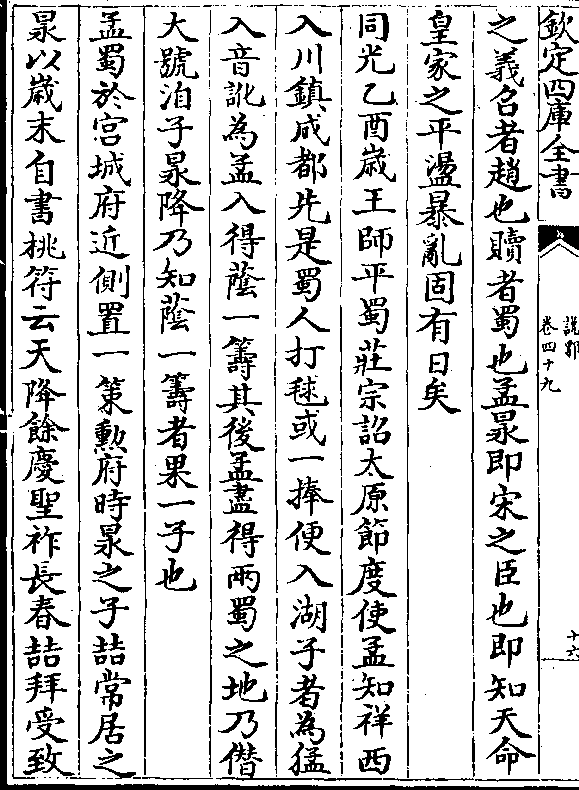 欽定四庫全書
說郛
卷四十九
十六
之義召者趙也贖者蜀也孟㫤即宋之臣也即知天命
皇家之平盪暴亂固有日矣
同光乙酉歲王師平蜀莊宗詔太原節度使孟知祥西
入川鎮成都先是蜀人打毬或一捧便入湖子者為猛
入音訛為孟入得蔭一籌其後孟盡得兩蜀之地乃僣
大號洎子㫤降乃知蔭一籌者果一子也
孟蜀於宫城府近側置一䇿勲府時㫤之子喆常居之
㫤以歲末自書桃符云天降餘慶聖祚長春喆拜受致